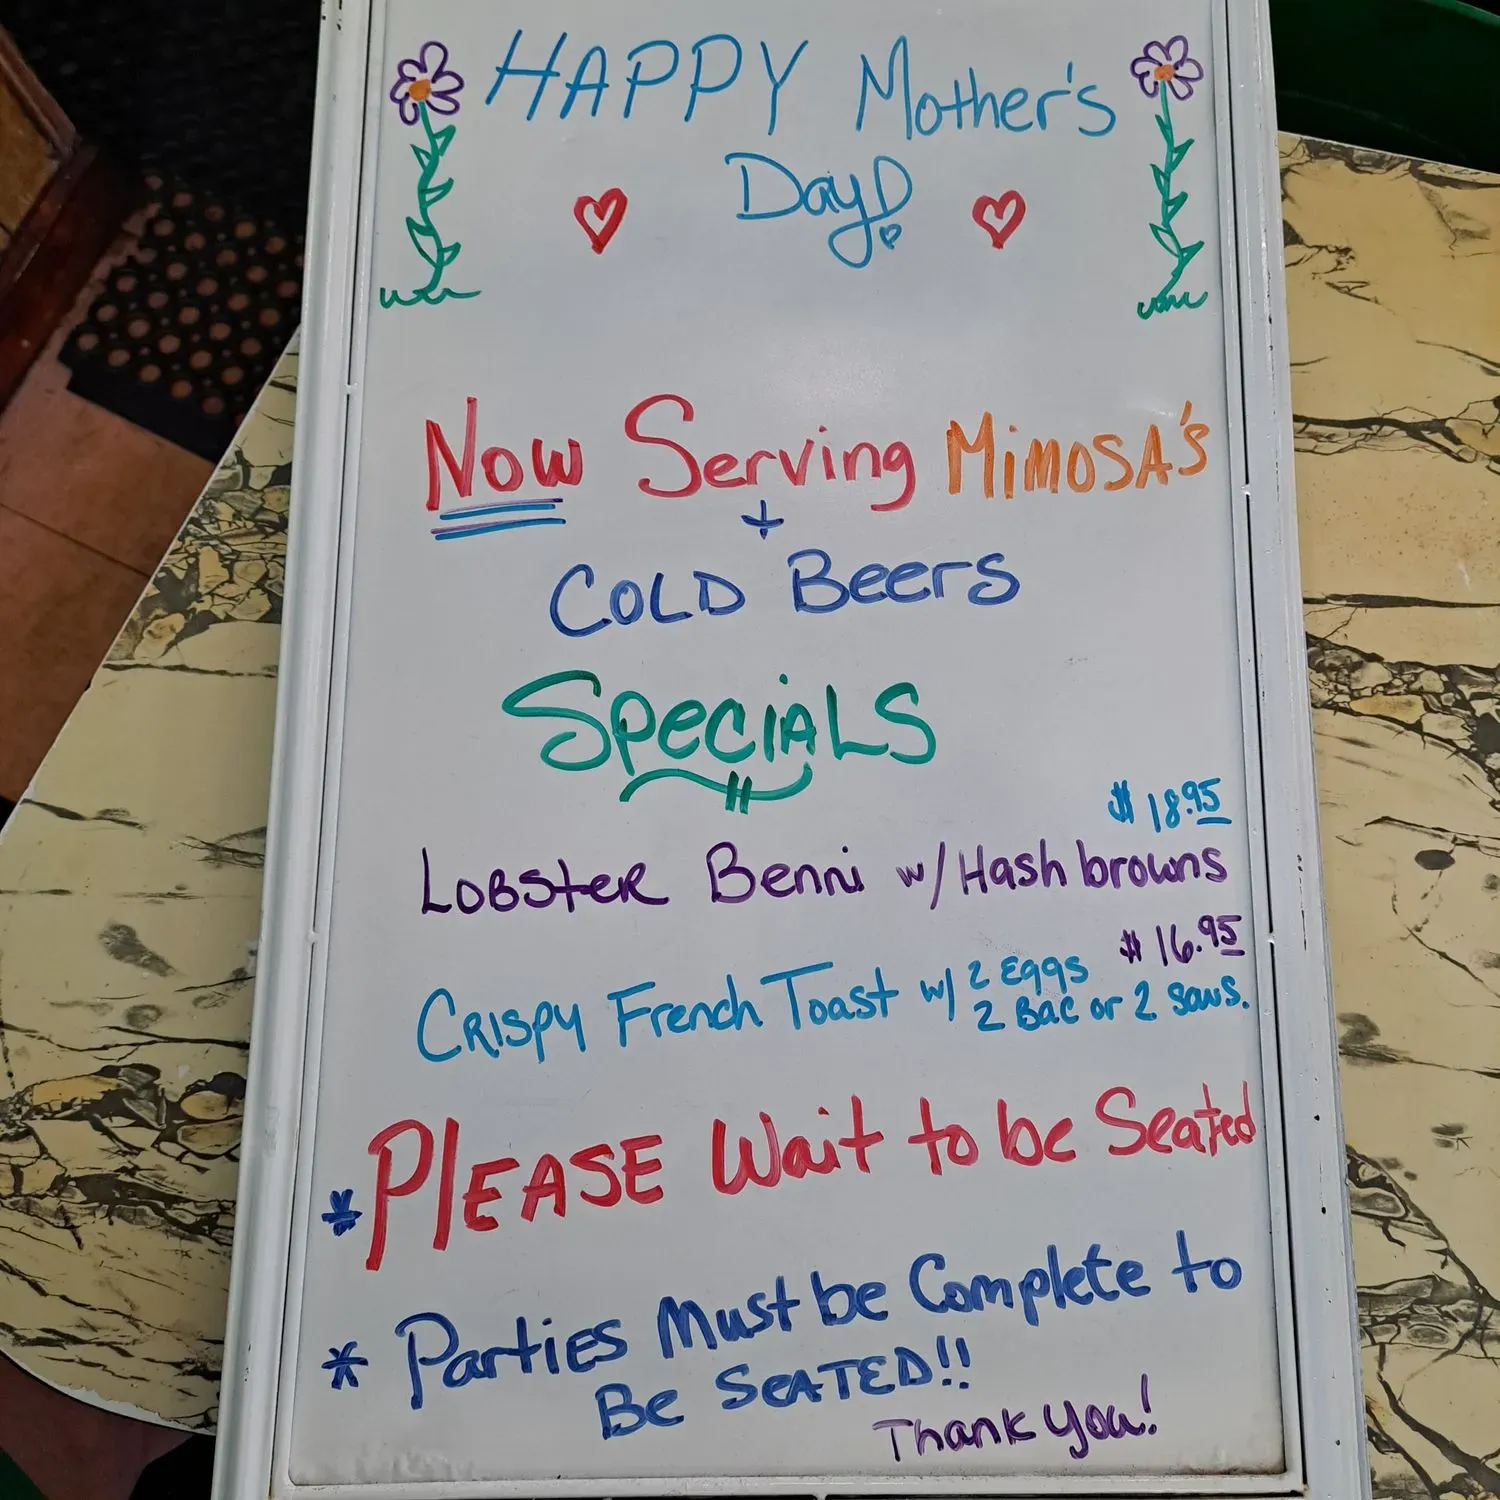 HAPPY Mother's
Day!
Now Serving MiMOSA'S
+
COLD Beers
SPeciALS
$18.95
LOBSTER Benni w/Hash browns
$16.95
CRISPY French Toast w/ 2 Eggs
2 Bac or 2 Saus.
* PLEASE Wait to be Seated
* Parties Must be Complete to
Be SEATED!!
Thank you!